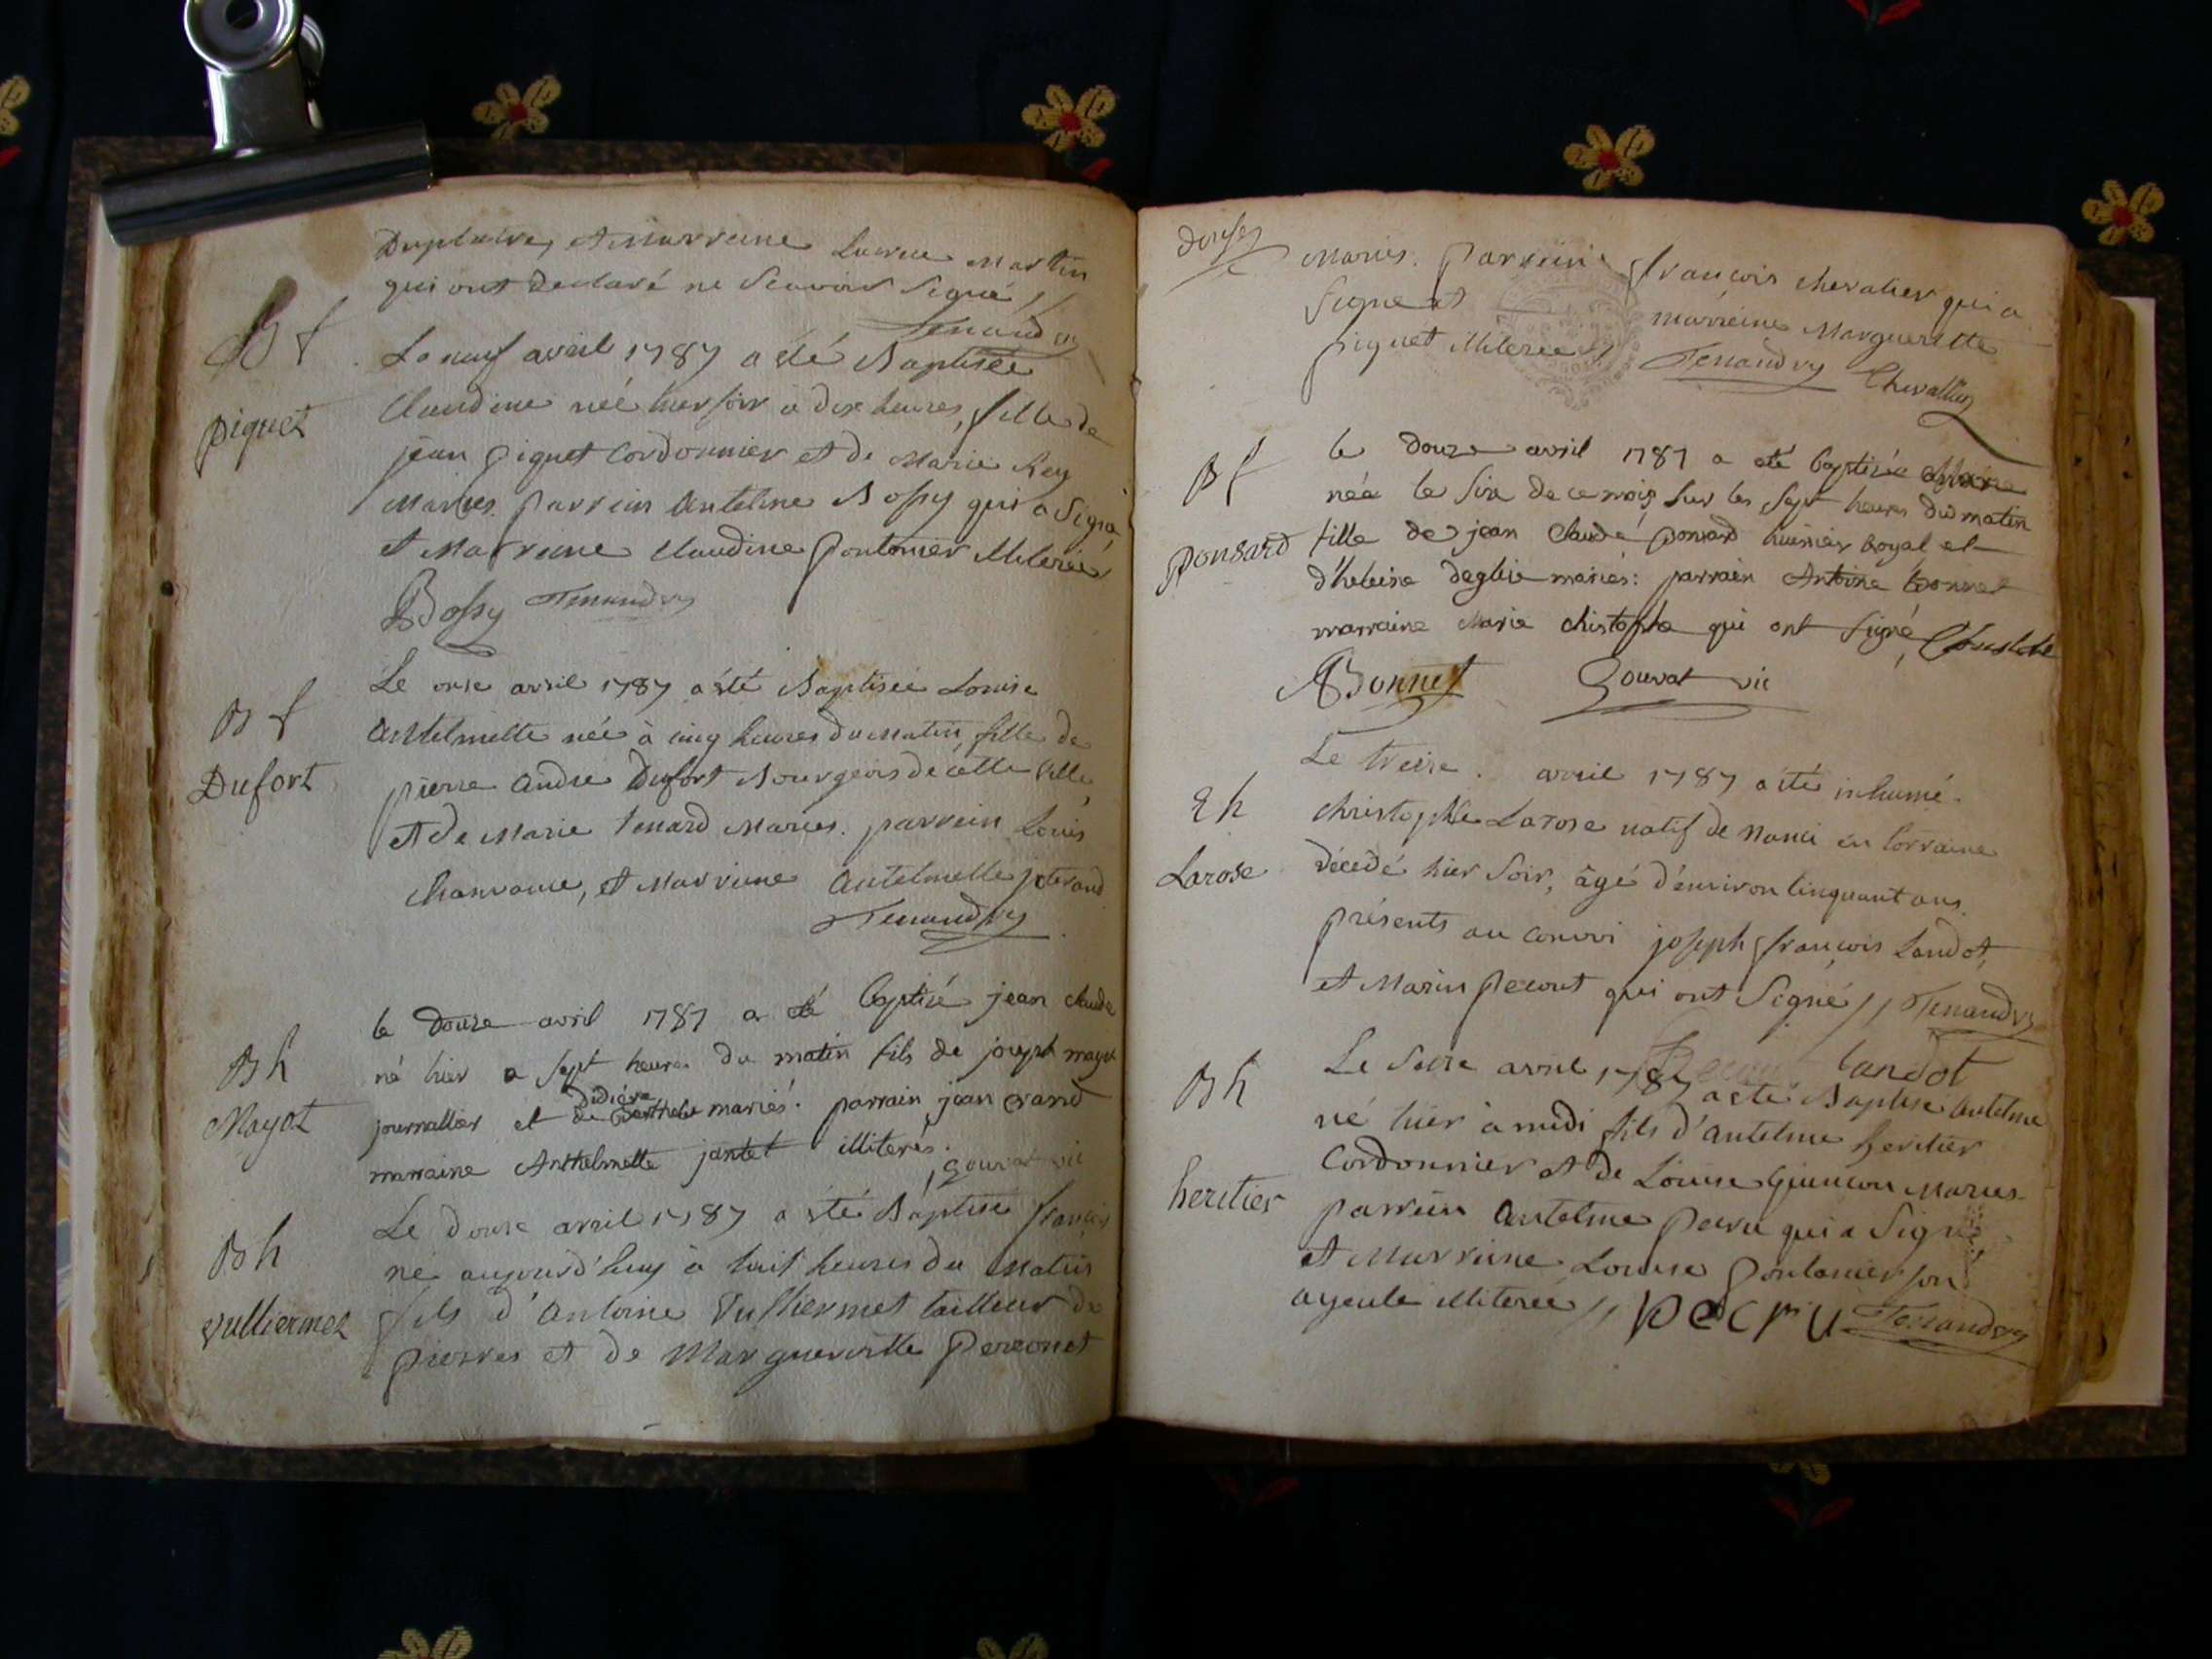 et Marreine Martin
qui ont declaré ne Scavoir Signé
Tenand vy
B f
Le neuf avril 1787 a été Baptisée
Claudine née hier soir a dix heures, fille de
piguet
jean piguet Cordonnier et de Marie Rey
Mariés. parrein Antelme Bossy qui a Signé
et Marreine Claudine pontonier illiterée
Bossy Tenand vy
B f
Le onse avril 1787 a été Baptisée Louise
Antelmette née à cinq heures du matin, fille de
Dufort
pierre André Dufort Bourgeois de cette ville,
et de Marie tenard Mariés. parrein Louis
et Marreine Antelmette
Tenand vy
B h
le douze avril 1787 a eté baptisé jean claude
né hier a sept heures du matin fils de joseph mayot
Mayot
didière
journallier et de Berthelet mariés. parrain jean
marraine Anthelmette jantet illiterés.
Gouvat vic
B h
Le douse avril 1787 a été Baptisé françois
né aujourd'huy à huit heures du Matin
vulliermet
fils d'Antoine Vulliermet tailleur de
pierres et de Margueritte perronet
douse
Mariés. parrein françois chevalier qui a
Signé et marreine Margueritte
piguet illiterée // Tenand vy Chevallier
B f
le douze avril 1787 a eté baptisée
née le six de ce mois sur les sept heures du matin
ponsard
fille de jean claude ponsard huissier royal et
d'heleine mariés: parrain Antoine bonnet
marraine Marie christophe qui ont signé Christophe
ABonnet Gouvat vic
E h
Le treise avril 1787 a été inhumé
Christophle Larose natif de Nanci en Lorraine
Larose
décedé hier soir, âgé d'environ Cinquant ans
présents au convoi joseph françois Landot,
et Marin pecout qui ont Signé // Tenand vy
landot
B h
Le Seise avril 1787 a été Baptisé Antelme
né hier à midi fils d'Antelme heritier
heritier
Cordonnier et de Louise Guinion Mariés
parrein Antelme pecru qui a Signé
et Marreine Louise pontonier son
ayeule illiterée // pecru Tenand vy